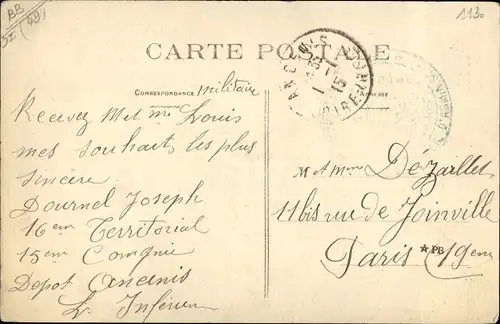 BB
II (43)
1130
CARTE POSTALE
CORRESPONDANCE
militaire
Recevez M et Mme Louis
mes souhaits les plus
sincère
Dournel Joseph
16em Territorial
15em Compnie
Depot Ancenis
L. Inferieu
M et Mme Dézaillet
11bis rue de Joinville
Paris *PB (19em